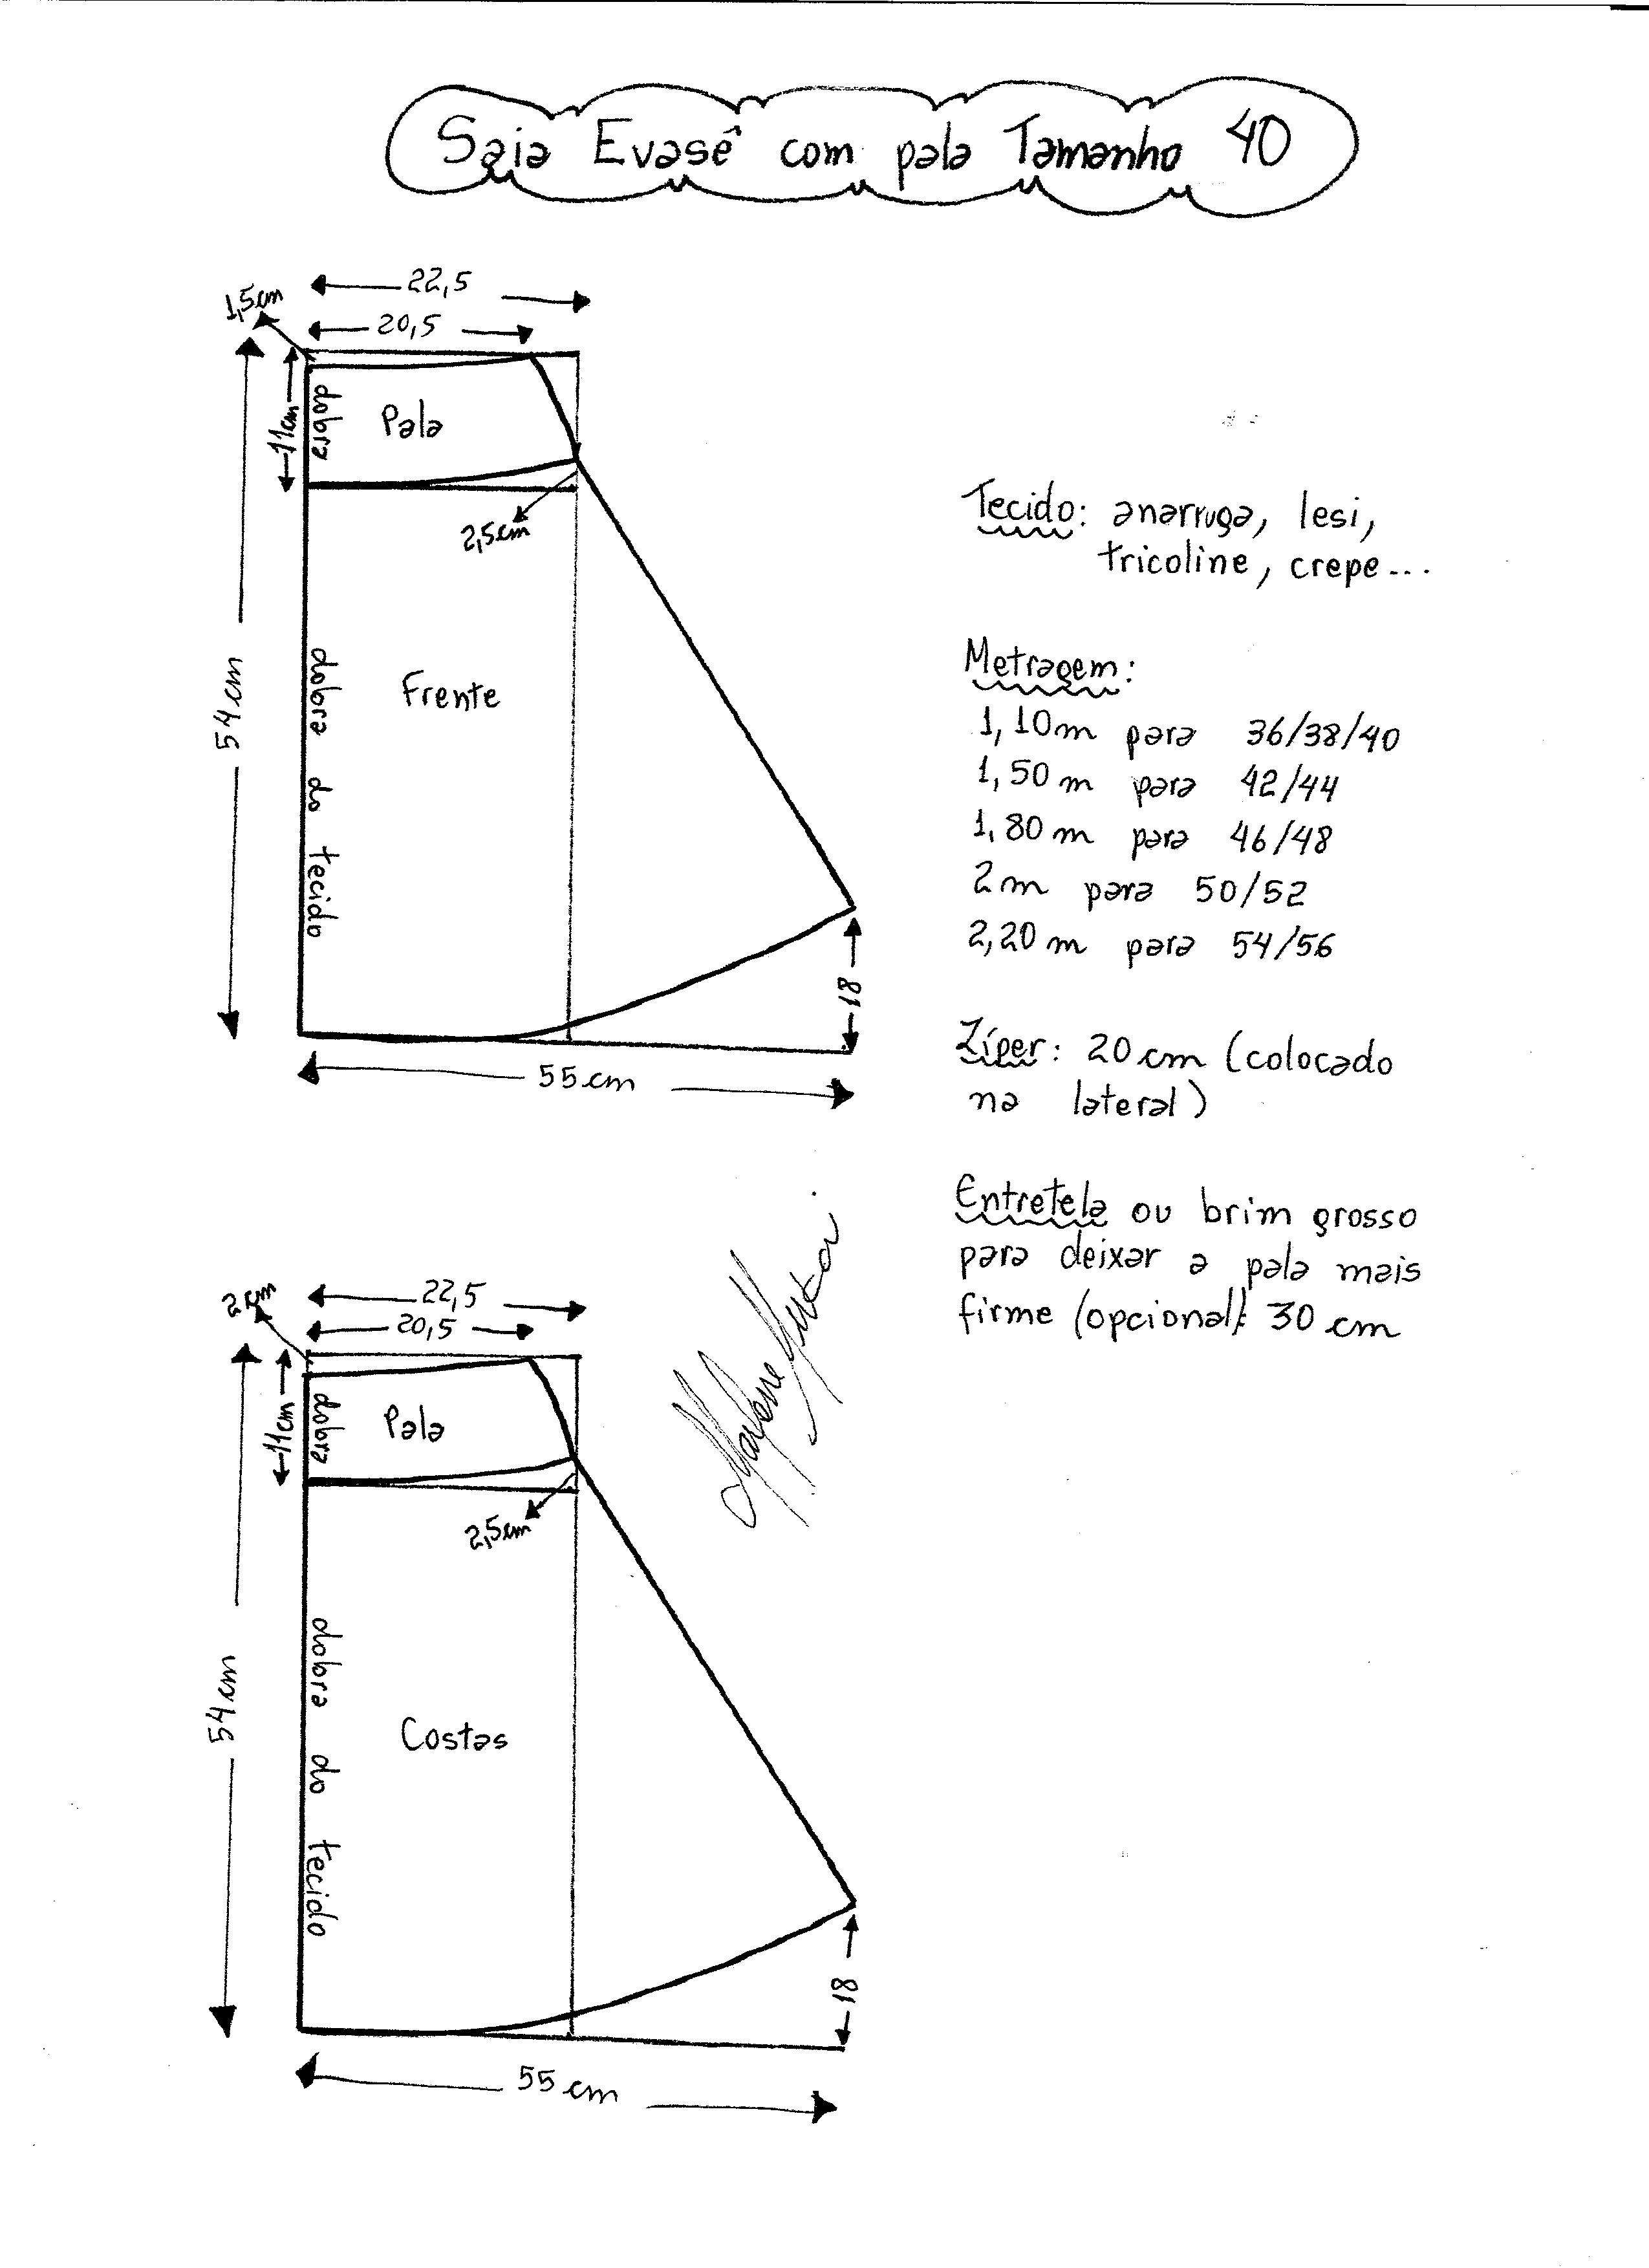 Saia Evasê com pala Tamanho 40
22,5
1,5cm
20,5
11cm
dobra
Pala
2,5cm
54cm
dobra do tecido
Frente
18
55cm
Tecido: anarruga, lesi,
tricoline, crepe...
Metragem:
1,10m para 36/38/40
1,50m para 42/44
1,80m para 46/48
2m para 50/52
2,20m para 54/56
Zíper: 20cm (colocado
na lateral)
Entretela ou brim grosso
para deixar a pala mais
firme (opcional): 30cm
22,5
2cm
20,5
11cm
dobra
Pala
2,5cm
54cm
dobra do tecido
Costas
18
55cm